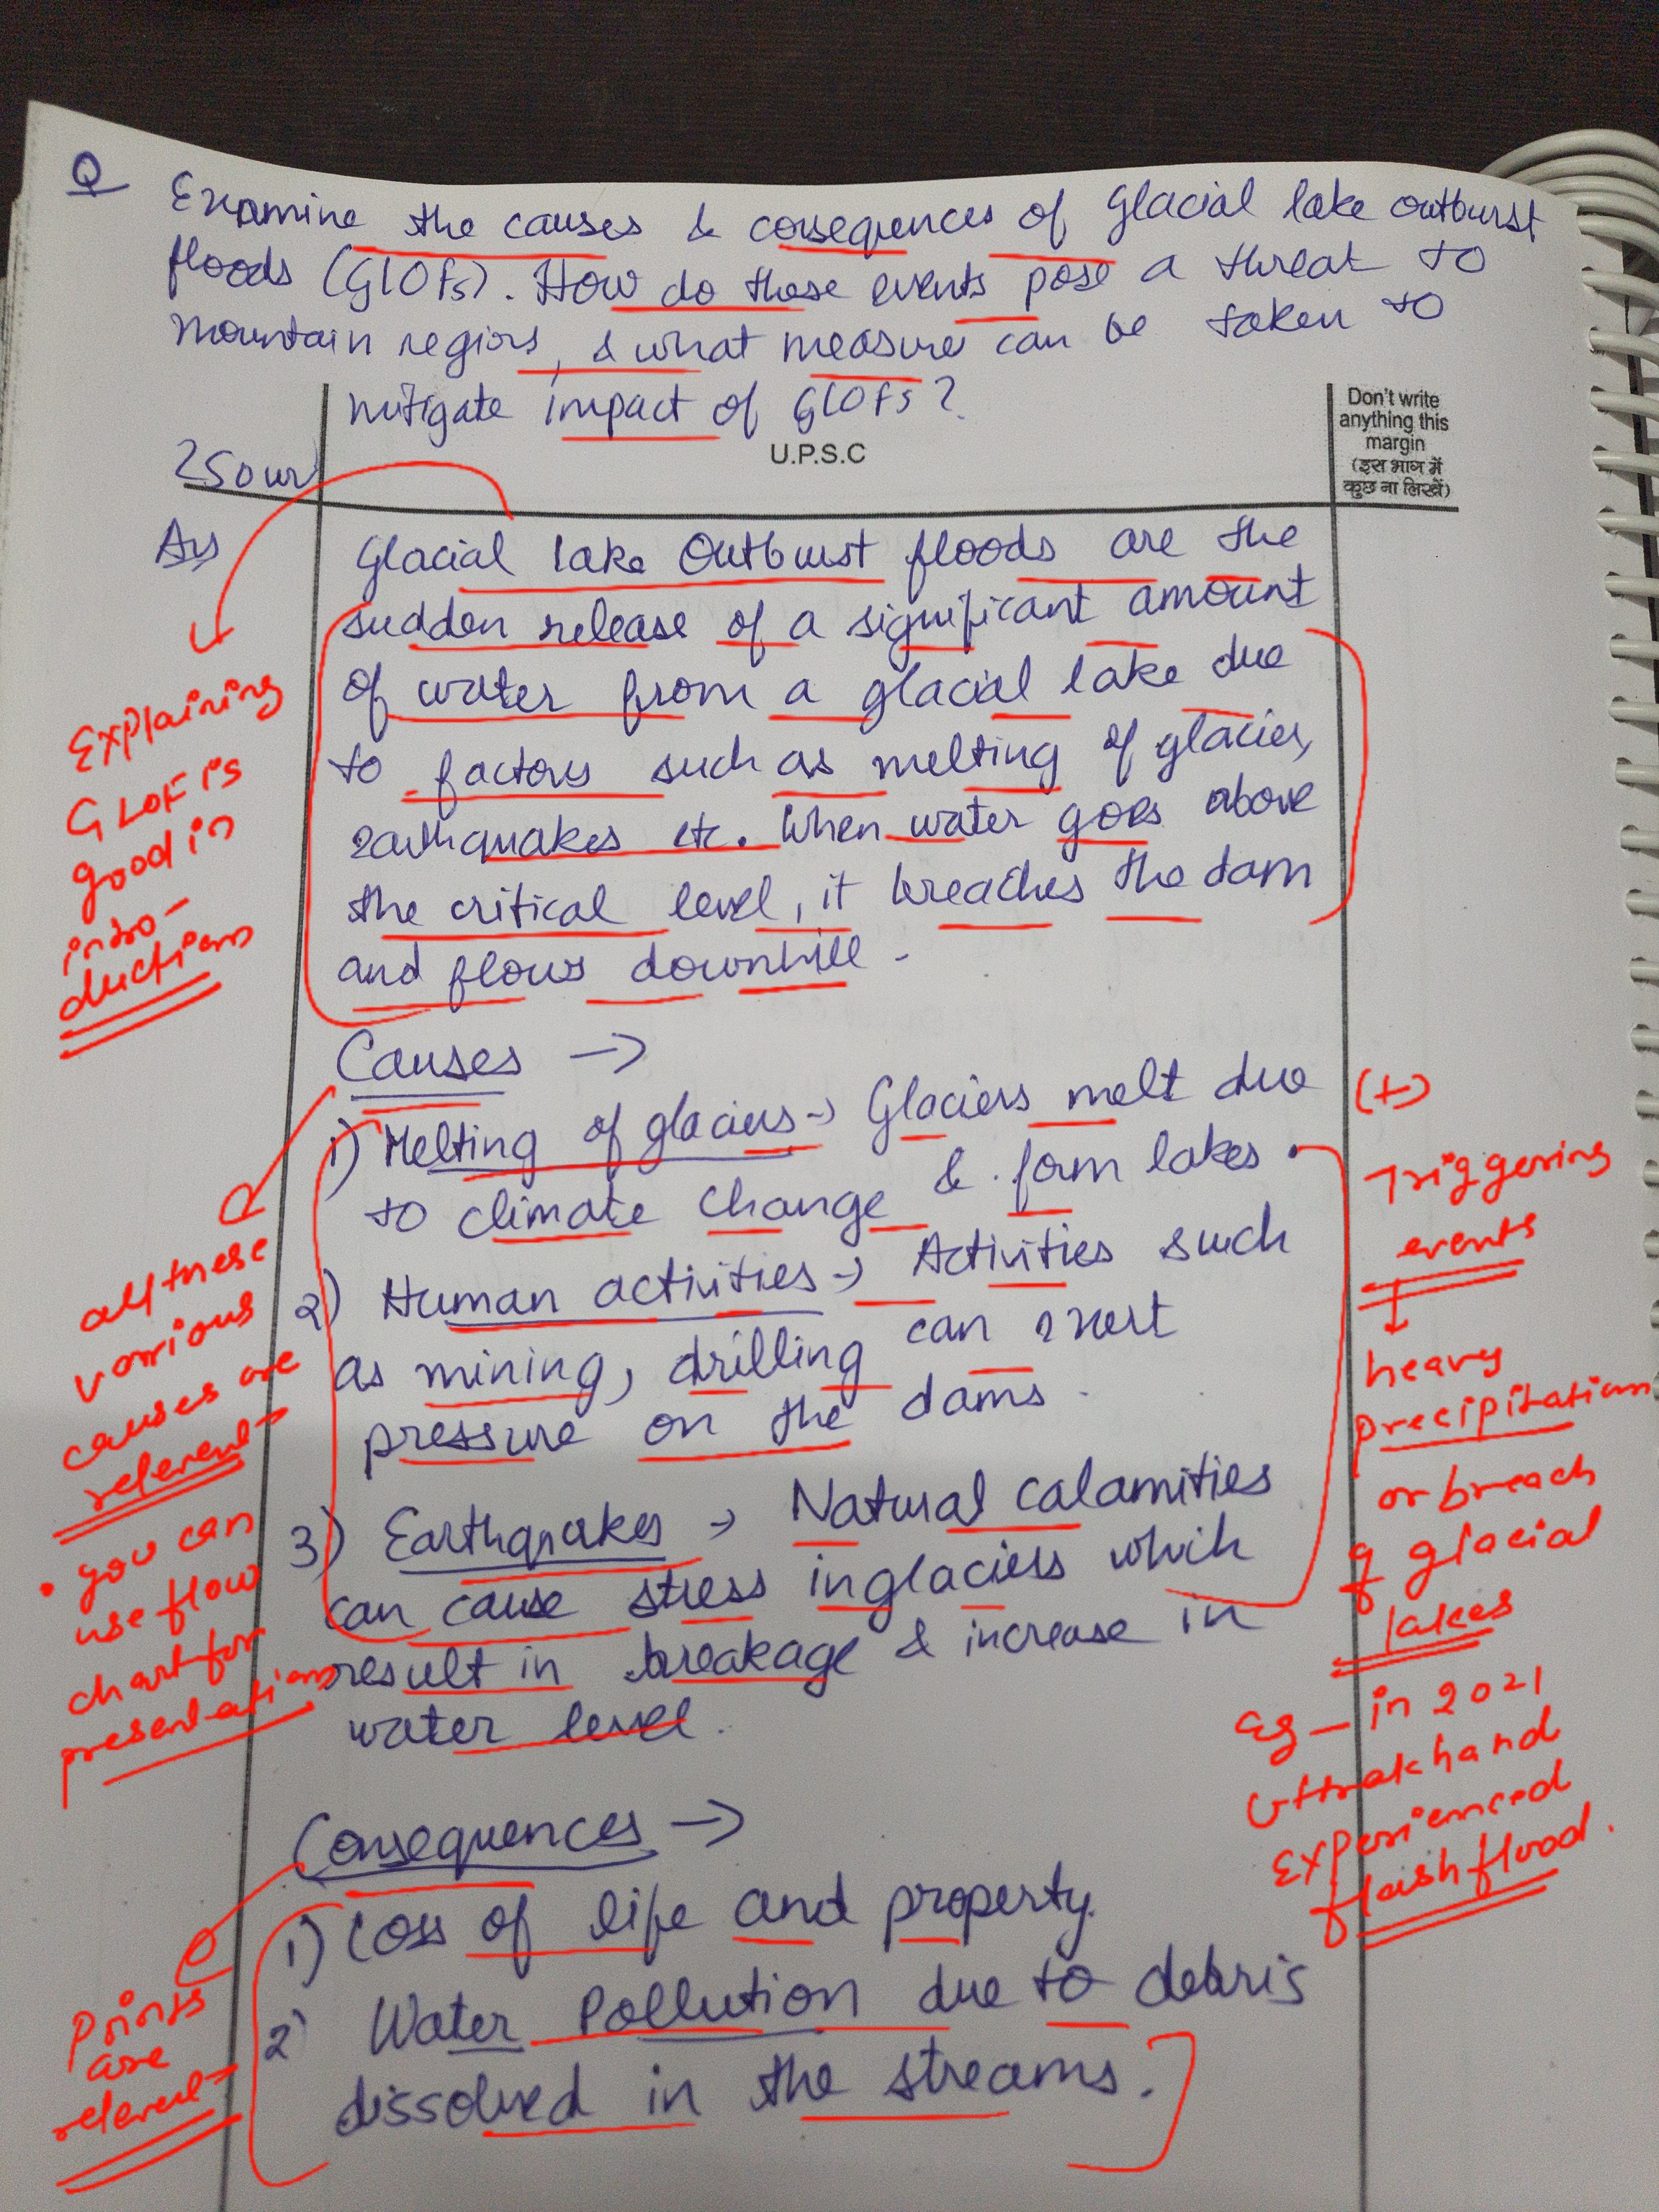 Q Examine the causes & consequences of Glacial lake outburst
floods (GLOFs). How do these events pose a threat to
mountain regions, & what measure can be taken to
mitigate impact of GLOFs?
U.P.S.C
Don't write
anything this
margin
(इस भाग में
कुछ ना लिखें)
Glacial lake Outburst floods are the
sudden release of a significant amount
of water from a glacial lake due
to factors such as melting of glacier,
earthquakes etc. When water goes above
the critical level, it breaches the dam
and flows downhill.
Explaining
GLOF is
good in
intro-
duction
Causes →
1) Melting of glaciers → Glaciers melt due
to climate change & form lakes.
2) Human activities → Activities such
as mining, drilling can exert
pressure on the dams.
3) Earthquakes → Natural calamities
can cause stress in glaciers which
result in breakage & increase in
water level.
all these
various
causes are
relevent
• you can
use flow
chart for
presentation
(+)
Triggering
events
↓
heavy
precipitation
or breach
of glacial
lakes
Eg - in 2021
Uttrakhand
Experienced
flash flood.
Consequences →
1) Loss of life and property.
2) Water Pollution due to debris
dissolved in the streams.
Points
are
relevent